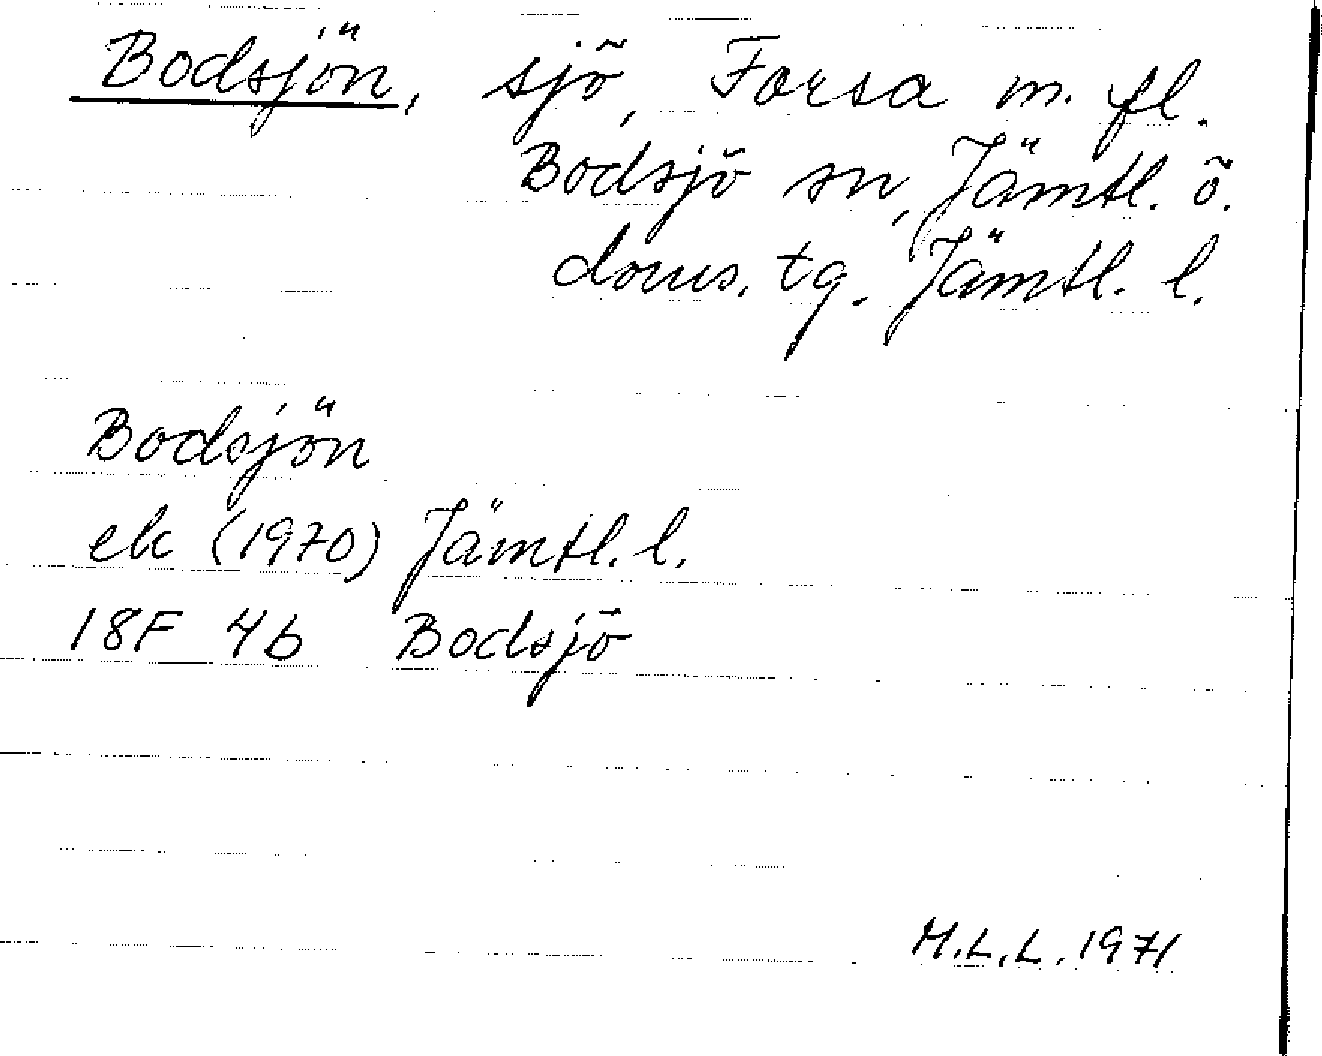 Bodsjön, sjö, Forsa m. fl.
Bodsjö sn, Jämtl. ö.
doms. tg. Jämtl. l.
Bodsjön
ek (1970) Jämtl. l.
18F 4b Bodsjö
M.L.L. 1971